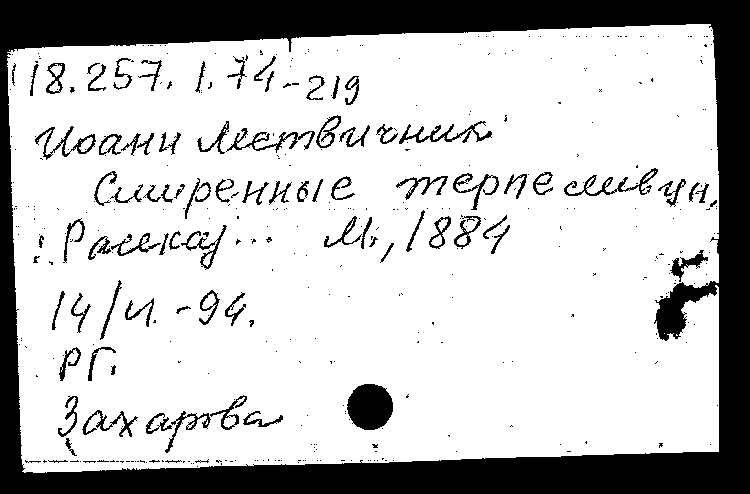 18.257.1.74-219
Иоанн Лествичник
Смиренные терпеливцы.
Рассказ... М., 1884
14/VI.-94.
РГ.
Захарова